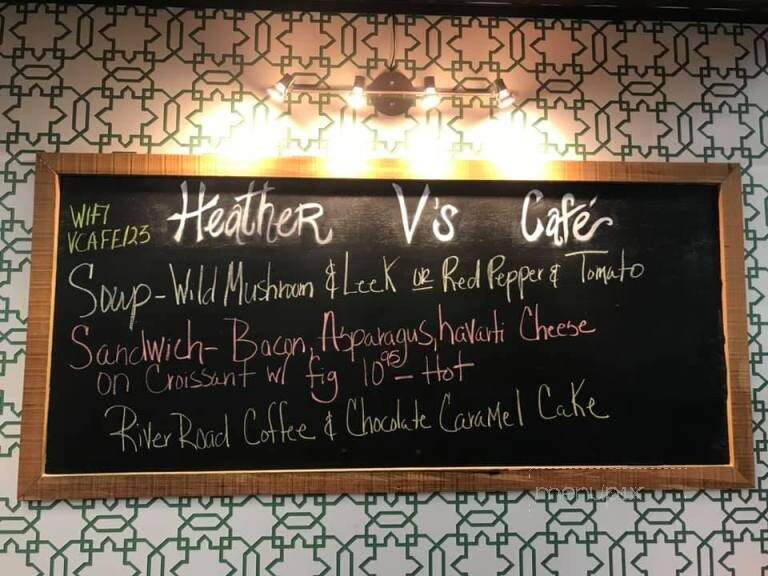 WIFI
VCAFE123
Heather V's Café
Soup - Wild Mushroom & Leek or Red Pepper & Tomato
Sandwich - Bacon, Asparagus, havarti Cheese
on Croissant w/ fig 10 95 - Hot
River Road Coffee & Chocolate Caramel Cake
menupix